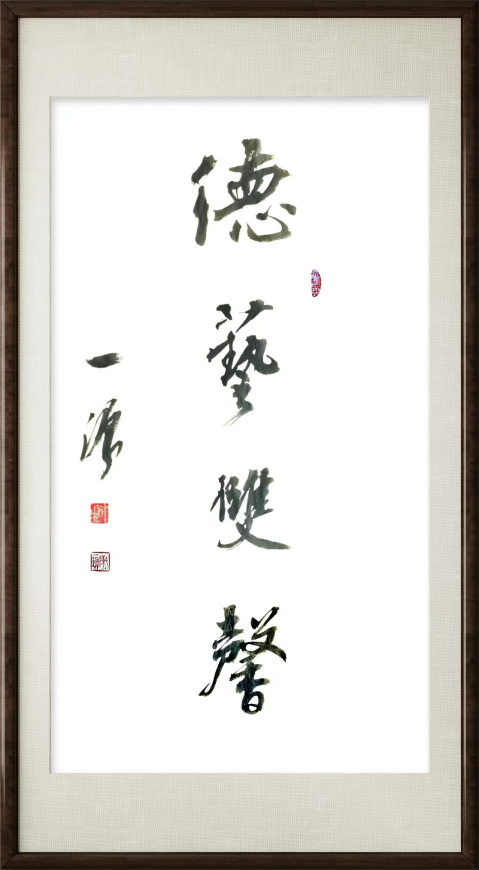 德藝雙馨
一源